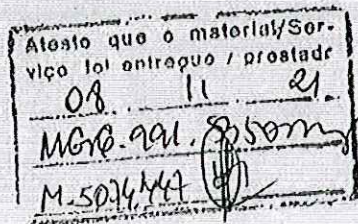 Atesto que o material/Ser-
viço foi entregue / prestado
08 11 21.
M. 5074747